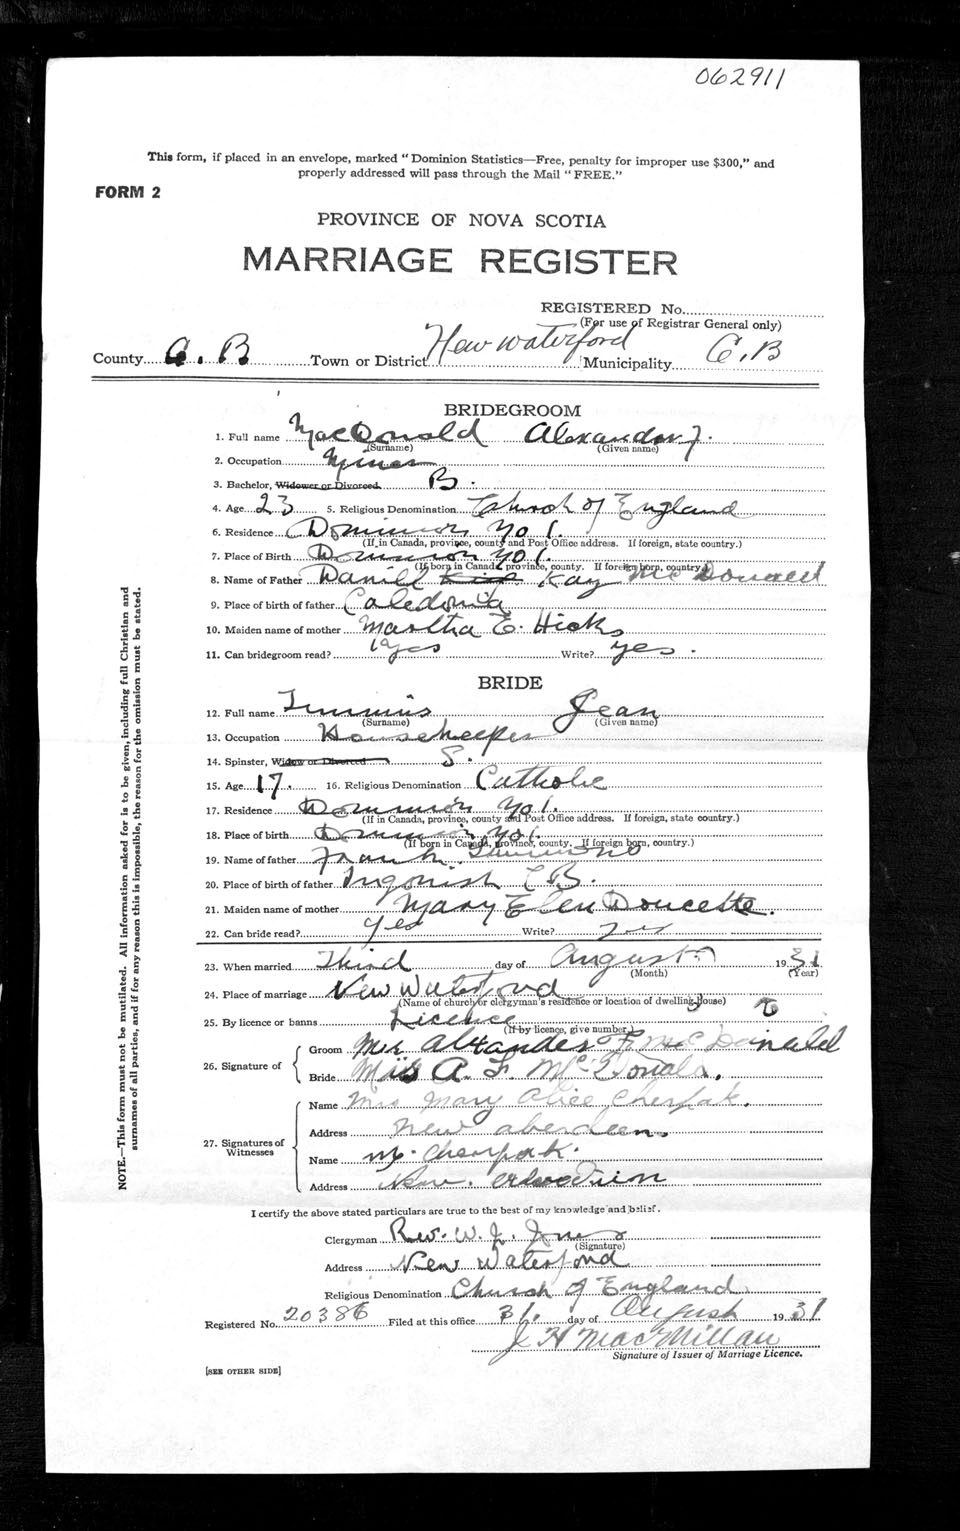 062911
This form, if placed in an envelope, marked "Dominion Statistics—Free, penalty for improper use $300," and
properly addressed will pass through the Mail "FREE."
FORM 2
PROVINCE OF NOVA SCOTIA
MARRIAGE REGISTER
REGISTERED No.
(For use of Registrar General only)
County C. B Town or District New waterford Municipality C. B
BRIDEGROOM
1. Full name MacDonald Alexander J.
(Surname) (Given name)
2. Occupation Miner
3. Bachelor, Widower or Divorced B.
4. Age 23 5. Religious Denomination Church of England
6. Residence Dominion No 1.
(If in Canada, province, county and Post Office address. If foreign, state country.)
7. Place of Birth Dominion No 1.
(If born in Canada, province, county. If foreign born, country)
8. Name of Father Daniel Kay McDonald
9. Place of birth of father Caledonia
10. Maiden name of mother Martha E. Hicks
11. Can bridegroom read? yes Write? yes.
BRIDE
12. Full name Timmins Jean
(Surname) (Given name)
13. Occupation Housekeeper
14. Spinster, Widow or Divorced S.
15. Age 17. 16. Religious Denomination Catholic
17. Residence Dominion No 1.
(If in Canada, province, county and Post Office address. If foreign, state country.)
18. Place of birth Dominion No 1.
(If born in Canada, province, county. If foreign born, country.)
19. Name of father Frank
20. Place of birth of father Ingonish C B.
21. Maiden name of mother Mary Elen Doucette.
22. Can bride read? yes Write? yes
23. When married Third day of August 1931
(Month) (Year)
24. Place of marriage New Waterford
(Name of church or clergyman's residence or location of dwelling house)
25. By licence or banns Licence
(If by licence, give number)
26. Signature of
Groom Mr Alexander F McDonald
Bride Miss A. F. McDonald.
27. Signatures of Witnesses
Name Mrs Mary Alice Cherpak.
Address New aberdeen.
Name M. Cherpak.
Address New
I certify the above stated particulars are true to the best of my knowledge and belief.
Clergyman Rev. W. J. Jones
(Signature)
Address New Waterford
Religious Denomination Church of England
Registered No. 20386 Filed at this office 31. day of August 1931
J H MacMillan
Signature of Issuer of Marriage Licence.
[SEE OTHER SIDE]
NOTE.—This form must not be mutilated. All information asked for is to be given, including full Christian and
surnames of all parties, and if for any reason this is impossible, the reason for the omission must be stated.